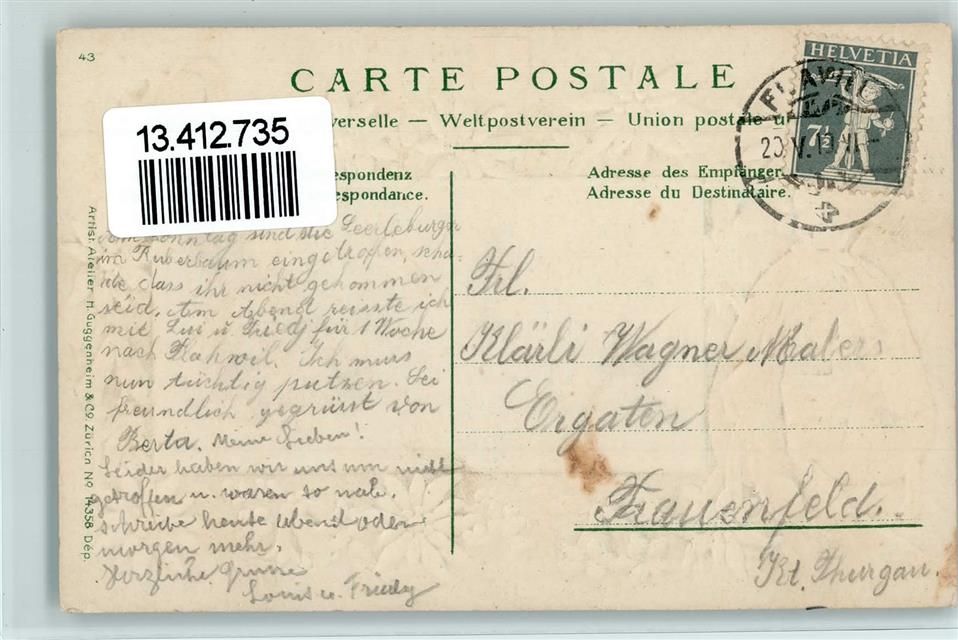 43
CARTE POSTALE
HELVETIA
7½
FLAWIL
13.412.735
verselle — Weltpostverein — Union postale u
espondenz
espondance.
Adresse des Empfänger.
Adresse du Destinataire.
Artist. Atelier H. Guggenheim & Co. Zürich No 14358 Dép.
Sonntag sind die
im eingetroffen, scha-
de dass ihr nicht gekommen
seid. Am Abend reisste ich
mit u. Friedj für 1 Woche
nach Ich muss
nun tüchtig putzen. Sei
freundlich gegrüsst von
Berta. Meine Lieben!
Leider haben wir uns nun nicht
getroffen u. waren so nah.
schreibe heute Abend oder
morgen mehr.
Herzliche Grüsse
Louis u. Friedy
Frl.
Klärli Wagner Malers
Ergaten
Frauenfeld.
Kt. Thurgau.